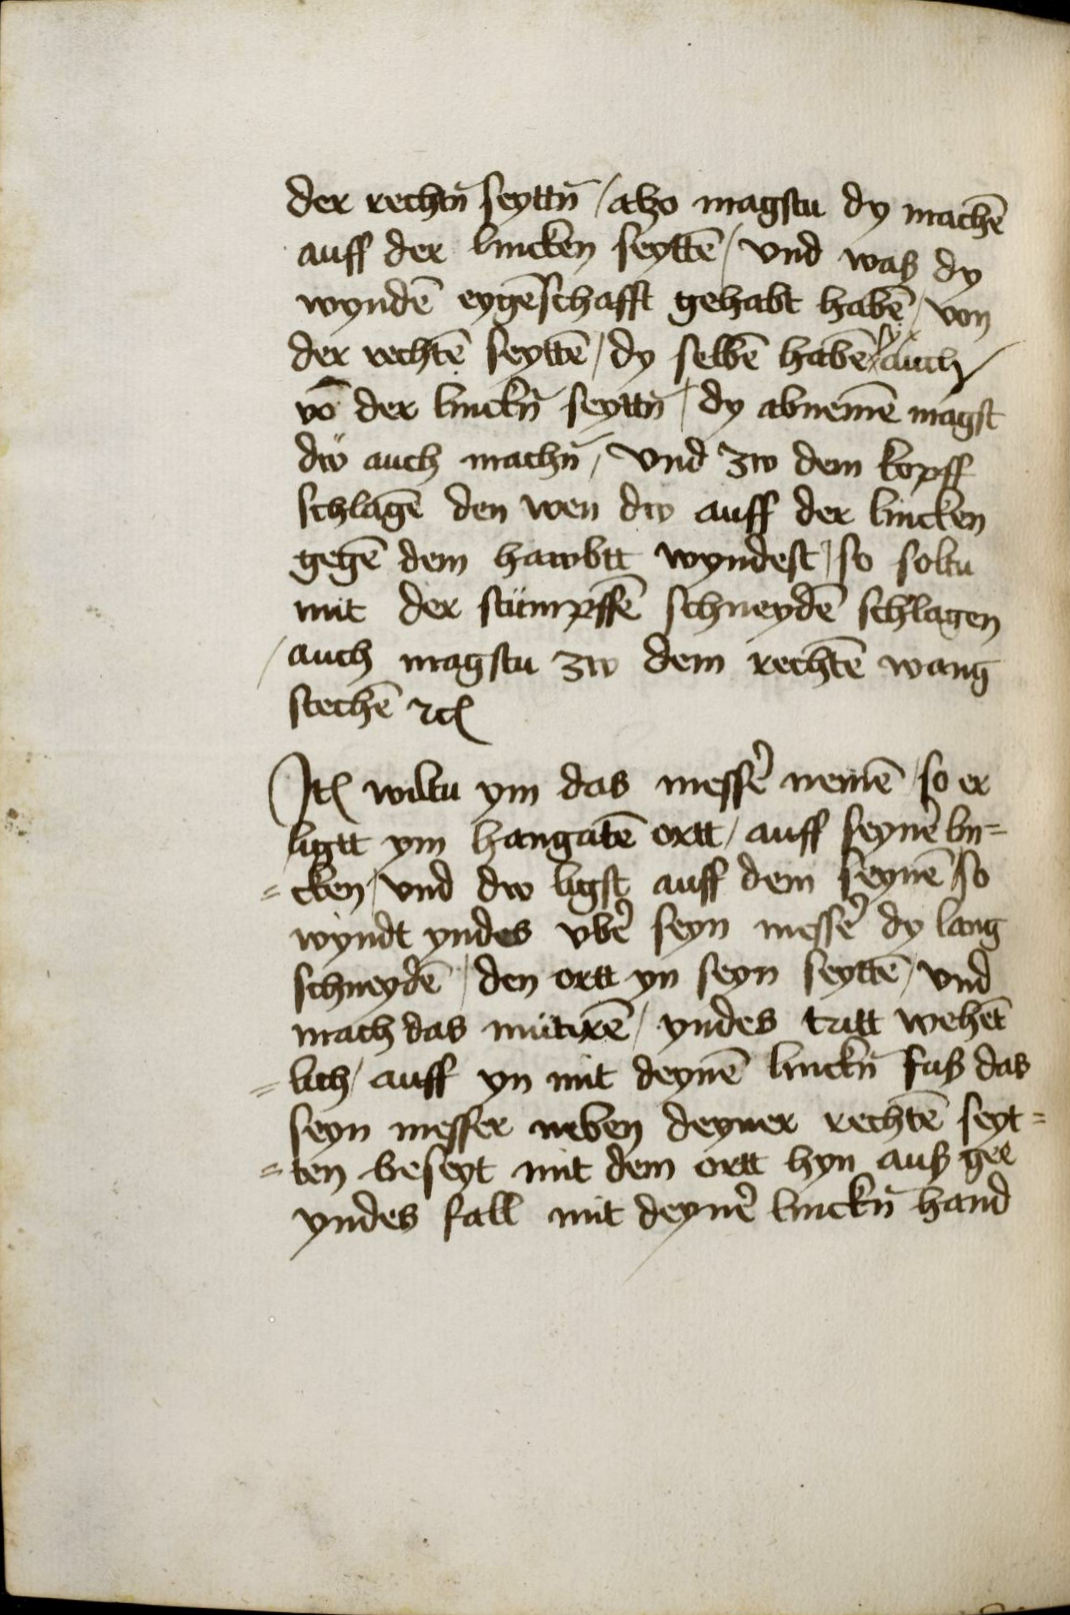 der rechtn̄ seyttn̄ / alzo magstu dy machē
auff der lincken seyttē / vnd was dy
wyndē eygēschafft gehabt habē / von
der rechtē seyttē / dy selbē habē sy auch /
vō der linckn̄ seyttn̄ / dy abnemē magst
dw auch machn̄ / Vnd zw dem kopff
schlagē den wen dw auff der lincken
gegē dem hawbtt wyndest / so soltu
mit der stümpffē schneydē schlagen
/ auch magstu zw dem rechtē wang
stechē ꝛcꝭ
Itꝭ wiltu ym das messe᷑ nemē / so er
ligtt ym hangatē ortt / auff seyne᷑ lin=
=cken / vnd dw ligst auff dem seynē / so
wyndt yndes vbe᷑ seyn messe᷑ dy lang
schneydē / den ortt yn seyn seyttē / vnd
mach das mütirē / yndes tritt wehēt
=lich / auff yn mit deynē linckn̄ fuß das
seyn messer neben deyner rechtē seyt=
=ten beseyt mit dem ortt hyn auß gee
yndes fall mit deyne᷑ linckn̄ hand